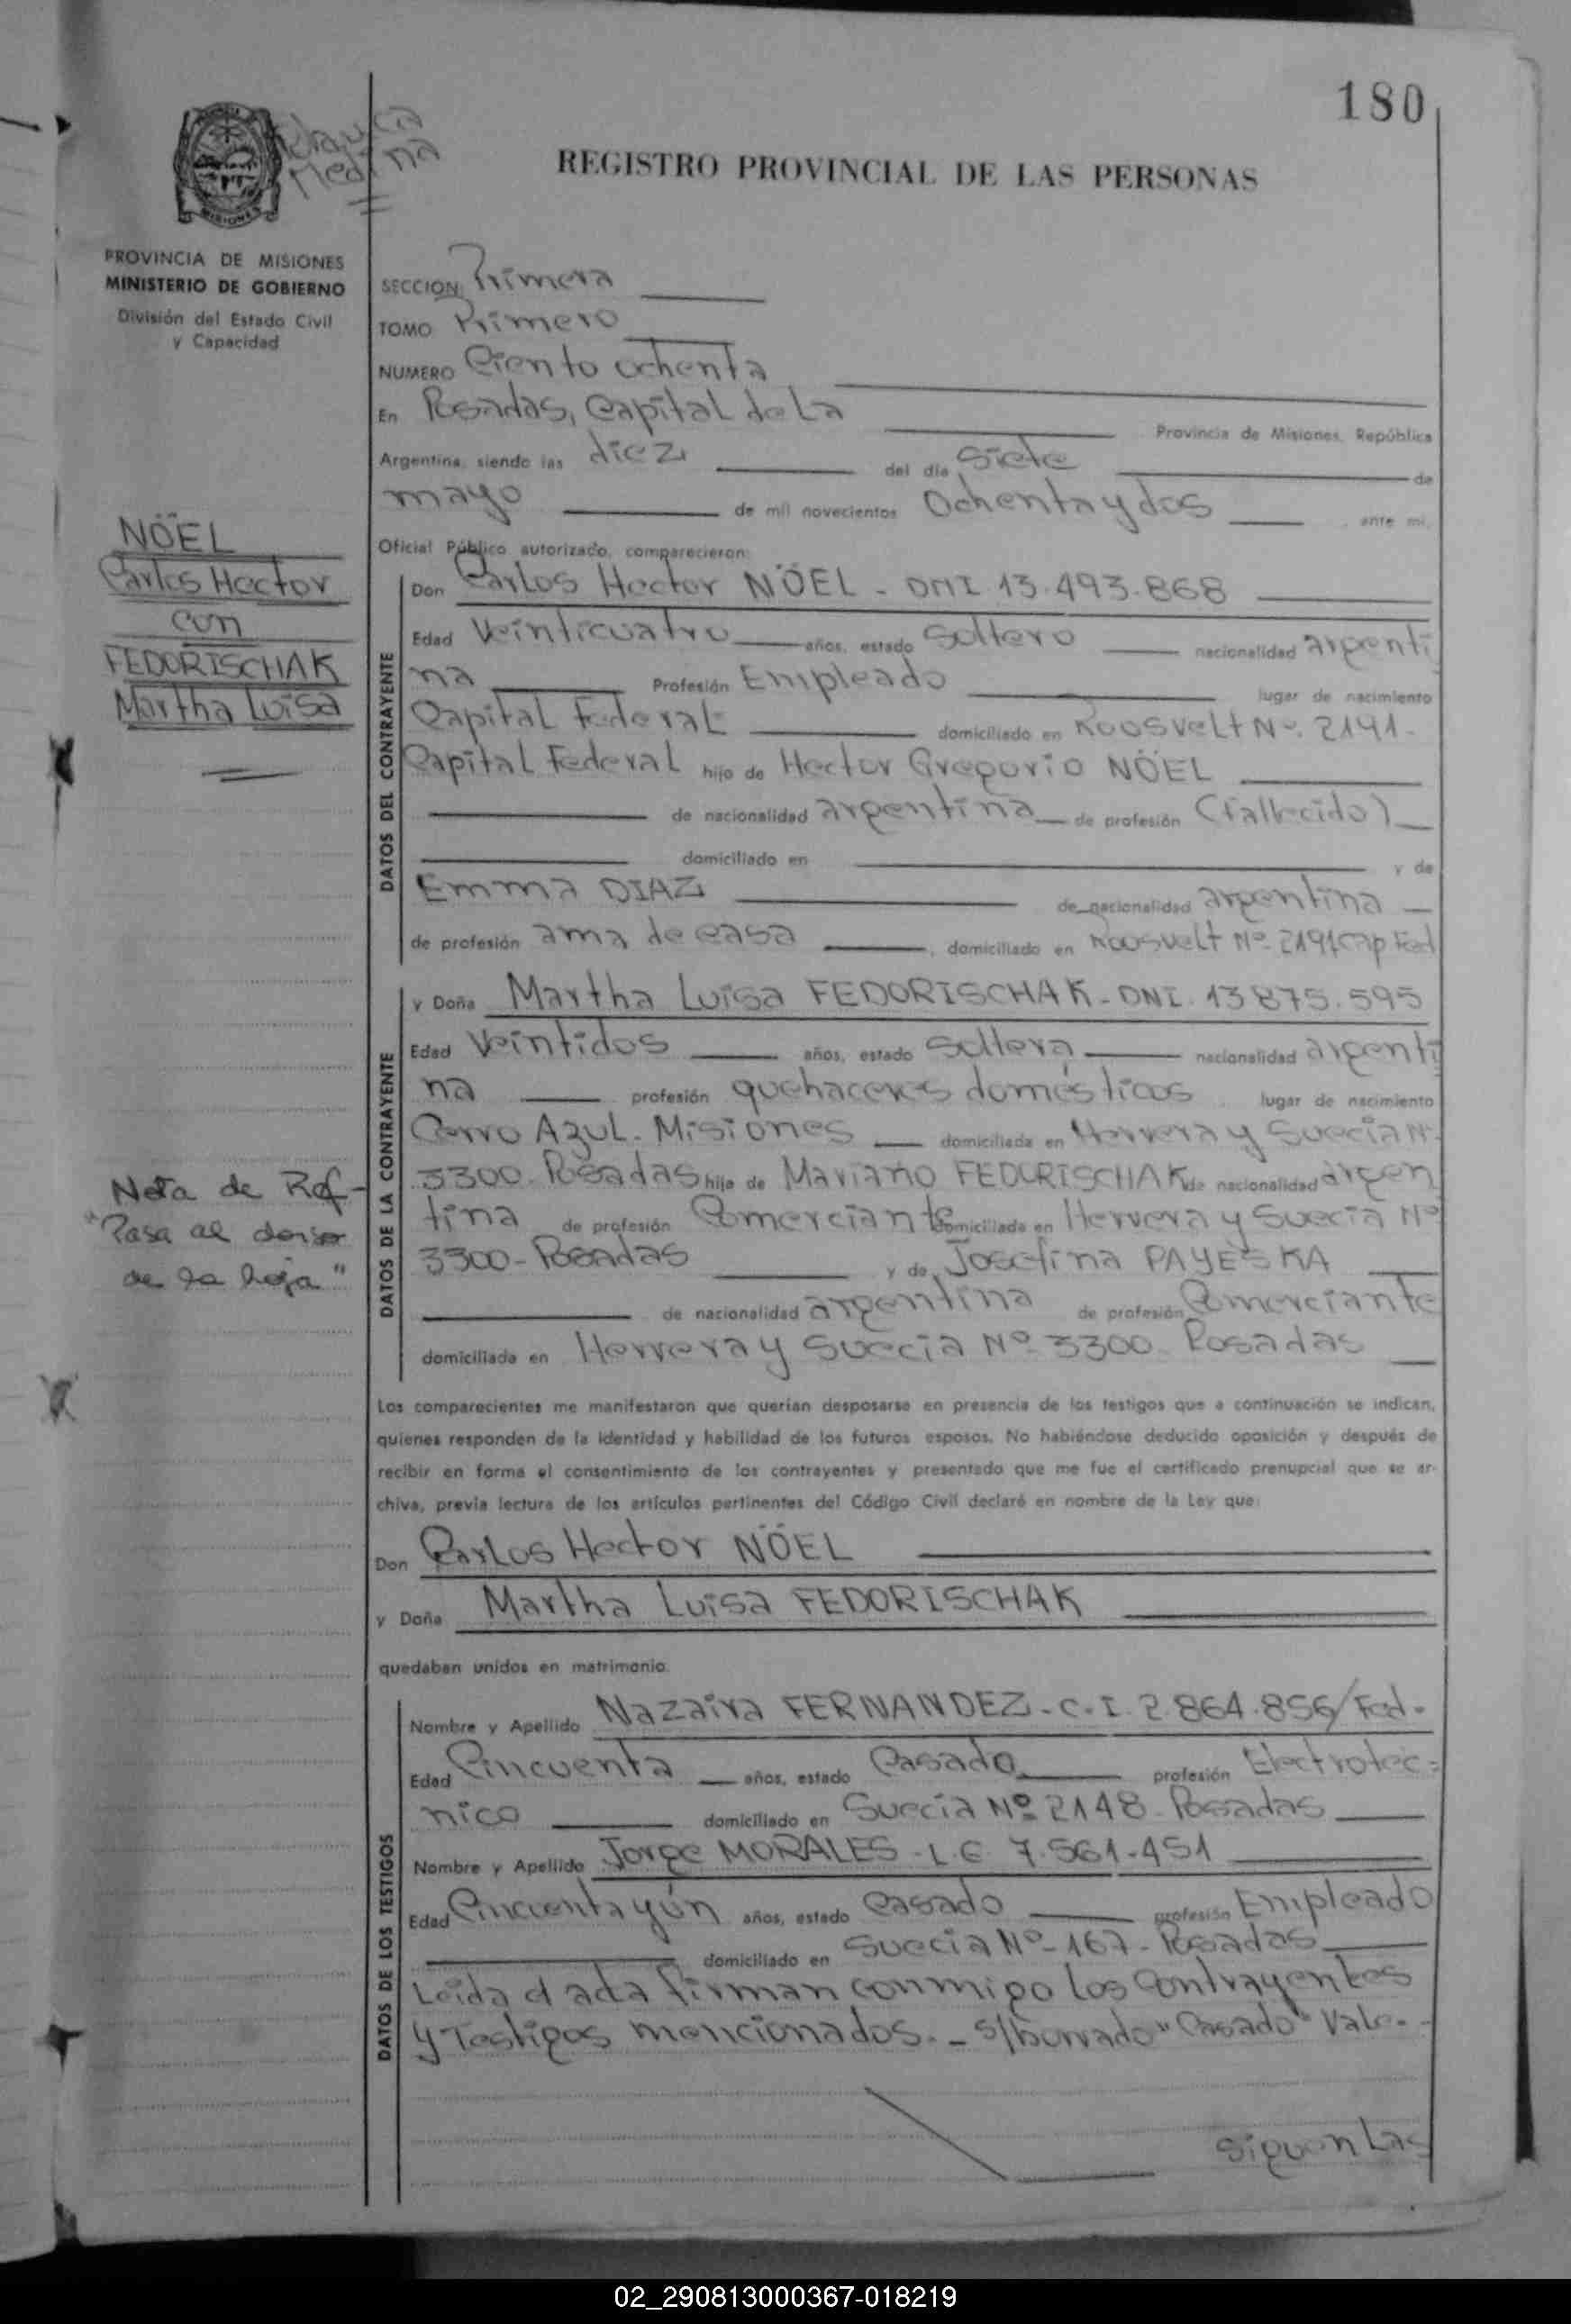 180
REGISTRO PROVINCIAL DE LAS PERSONAS
MISIONES
PROVINCIA DE MISIONES
MINISTERIO DE GOBIERNO
División del Estado Civil
y Capacidad
SECCION: Primera
TOMO Primero
NUMERO Ciento ochenta
En Posadas, Capital de La Provincia de Misiones, República
Argentina, siendo las diez del día Siete de
mayo de mil novecientos Ochenta y dos ante mi,
Oficial Público autorizado, comparecieron:
NÖEL
Carlos Hector
con
FEDORISCHAK
Martha Luisa
DATOS DEL CONTRAYENTE
Don Carlos Hector NÖEL - DNI 13.493.868
Edad Veinticuatro años, estado Soltero nacionalidad argenti
na Profesión Empleado lugar de nacimiento
Capital Federal domiciliado en Roosvelt Nº. 2191-
Capital Federal hijo de Hector Gregorio NÖEL
de nacionalidad argentina de profesión (fallecido)
domiciliado en y de
Emma DIAZ de nacionalidad argentina
de profesión ama de casa, domiciliado en Roosvelt Nº 2191 Cap Fed
DATOS DE LA CONTRAYENTE
y Doña Martha Luisa FEDORISCHAK - DNI. 13 875.595
Edad Veintidos años, estado Soltera nacionalidad argenti
na profesión quehaceres domésticos lugar de nacimiento
Cerro Azul - Misiones domiciliada en Herrera y Suecia Nº
3300- Posadas hija de Mariano FEDORISCHAK de nacionalidad argen
tina de profesión Comerciante domiciliado en Herrera y Suecia Nº
3300- Posadas y de Josefina PAYESKA
de nacionalidad argentina de profesión Comerciante
domiciliada en Herrera y Suecia Nº 3300- Posadas
Nota de Ref-
"Pasa al dorso
de la hoja"
Los comparecientes me manifestaron que querían desposarse en presencia de los testigos que a continuación se indican,
quienes responden de la identidad y habilidad de los futuros esposos. No habiéndose deducido oposición y después de
recibir en forma el consentimiento de los contrayentes y presentado que me fue el certificado prenupcial que se ar-
chiva, previa lectura de los artículos pertinentes del Código Civil declaré en nombre de la Ley que:
Don Carlos Hector NÖEL
y Doña Martha Luisa FEDORISCHAK
quedaban unidos en matrimonio.
DATOS DE LOS TESTIGOS
Nombre y Apellido Nazaira FERNANDEZ - C.I. 2.864.856/Fed-
Edad Cincuenta años, estado Casado profesión Electrotéc=
nico domiciliado en Suecia Nº 2148- Posadas
Nombre y Apellido Jorge MORALES - L.E. 7.561.451
Edad Cincuenta y ún años, estado Casado profesión Empleado
domiciliado en Suecia Nº- 167- Posadas
Leida el acta firman conmigo los Contrayentes
y Testigos mencionados.- S/borrado "Casado" Vale.-
Siguen Las
02_290813000367-018219